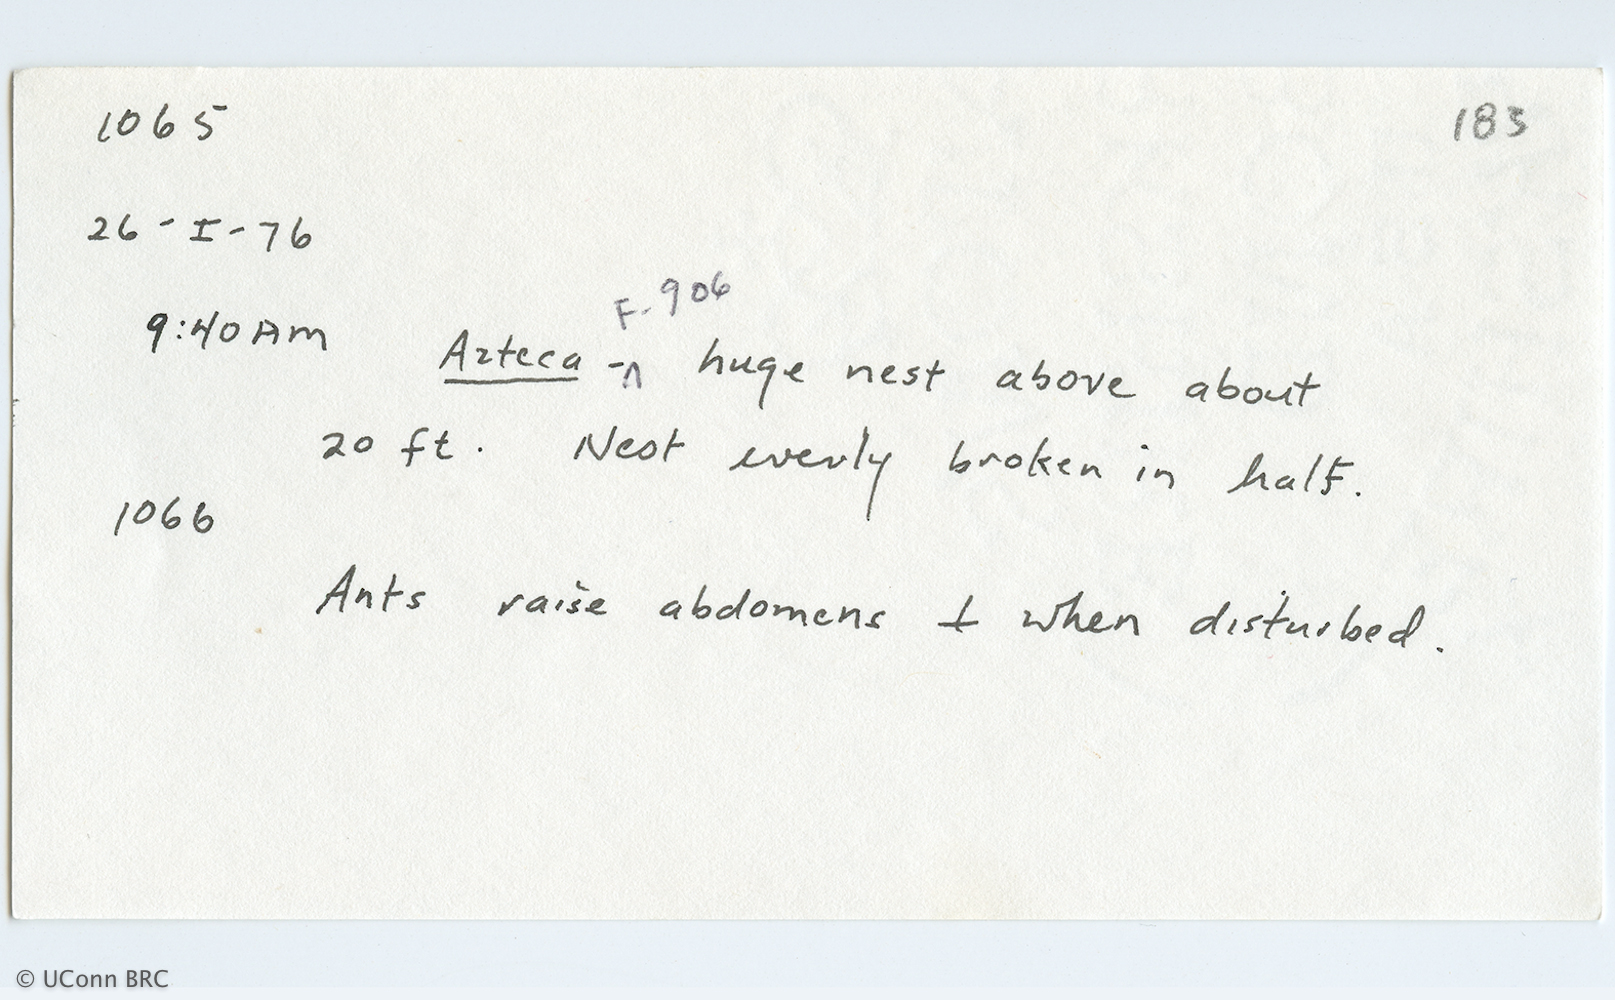 1065
183
26-I-76
9:40 AM
F-906
Azteca - ^ huge nest above about
20 ft. Nest evenly broken in half.
1066
Ants raise abdomens ⊥ when disturbed.
© UConn BRC